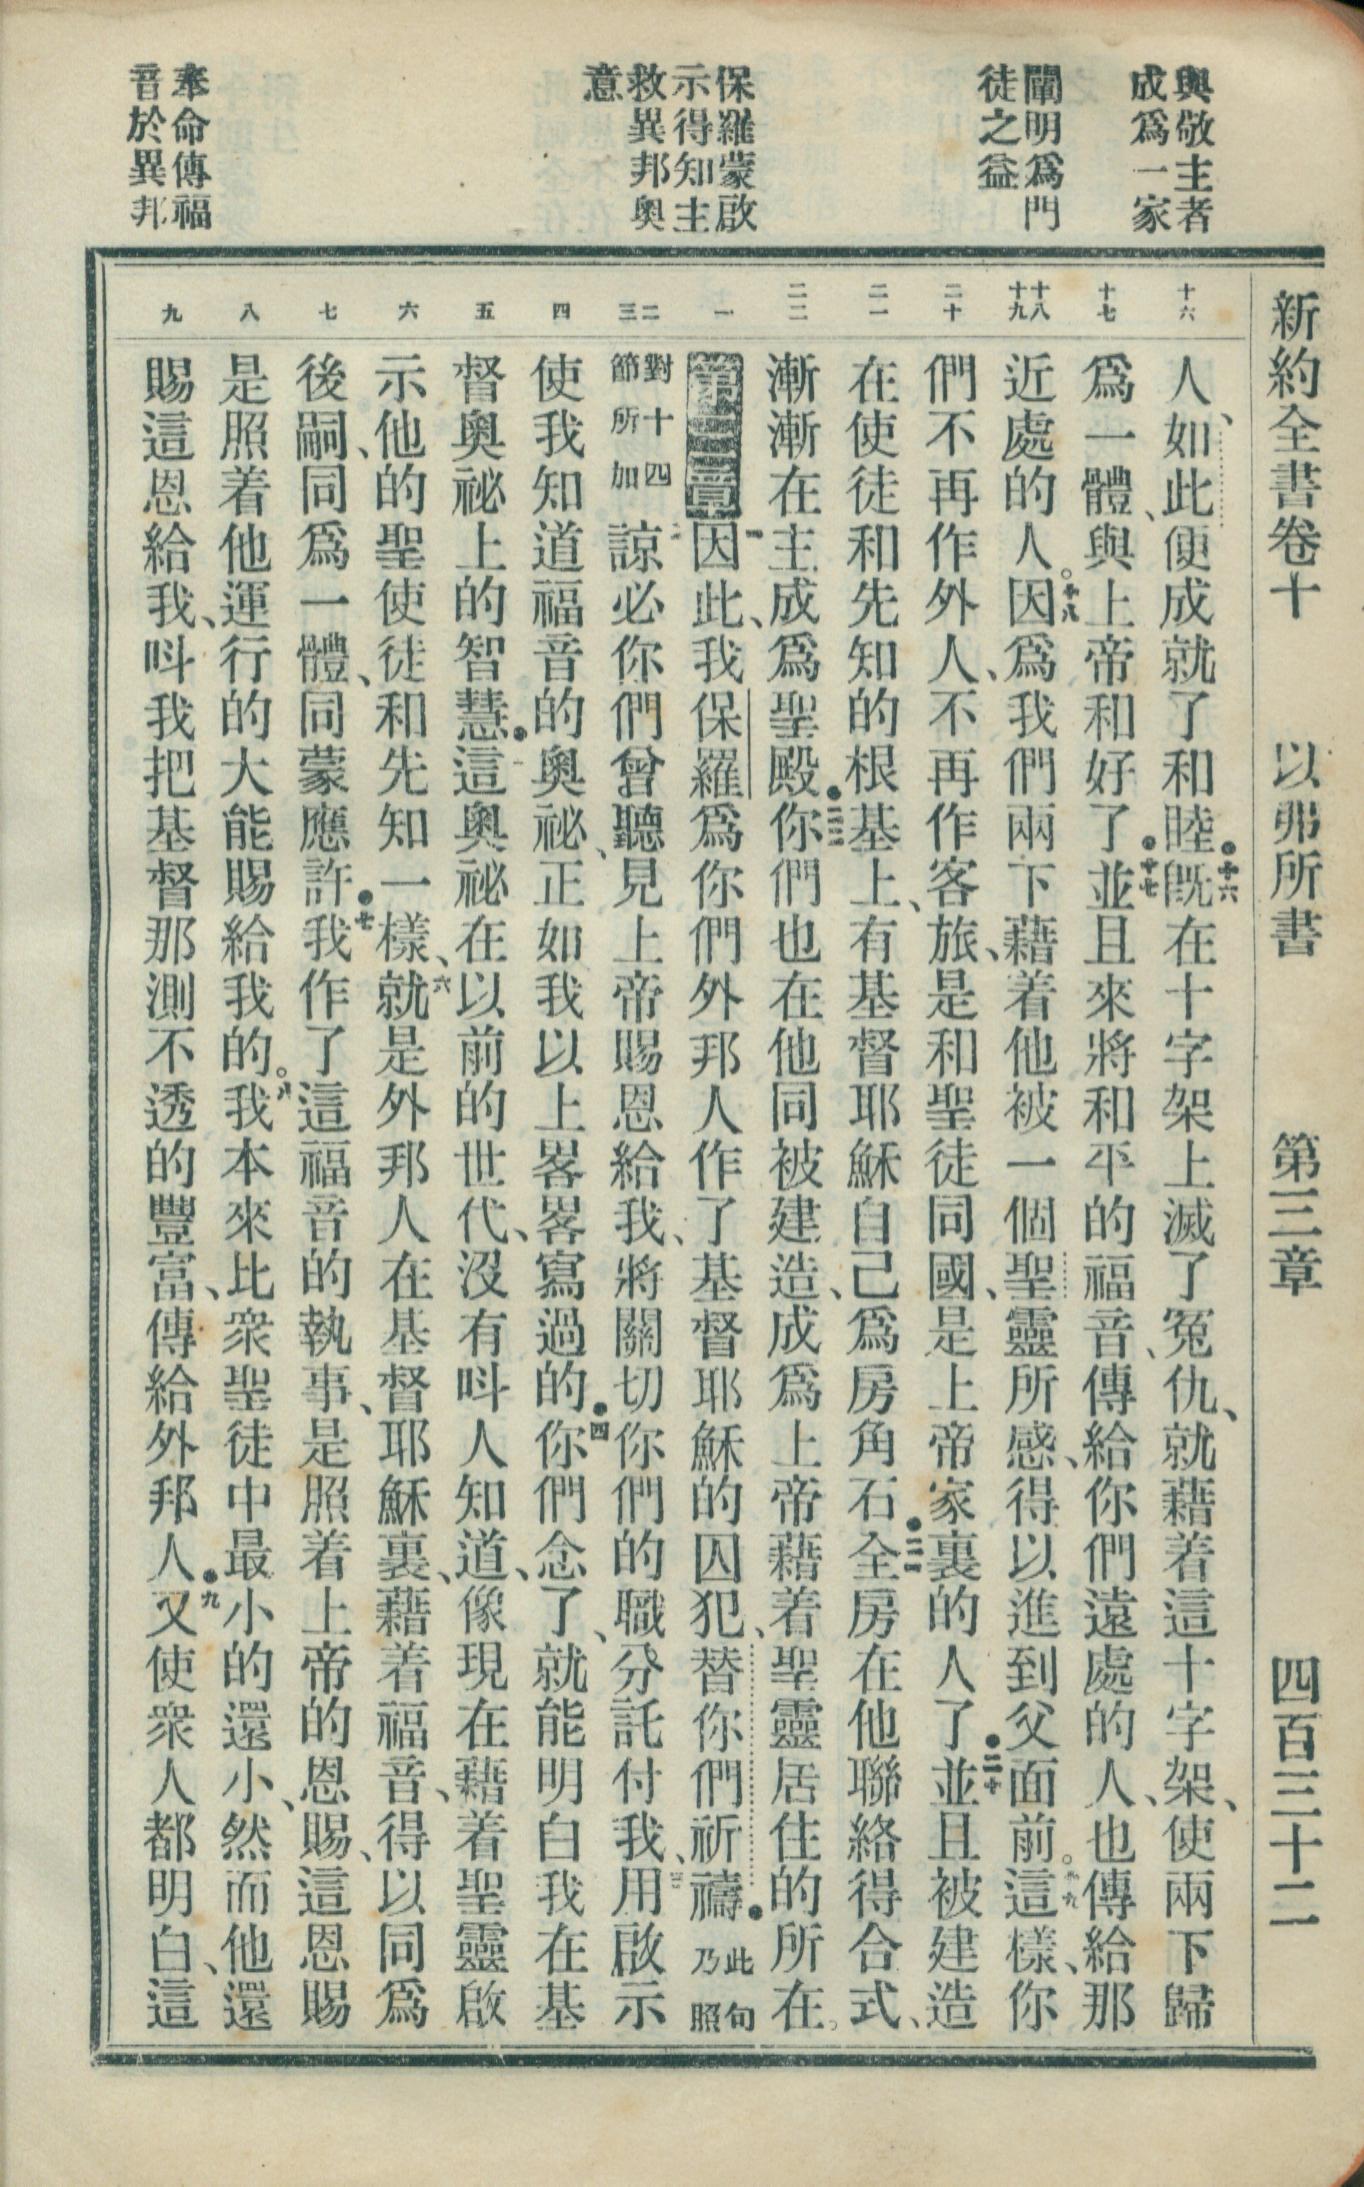 新約全書卷十　以弗所書　第三章　四百三十二
與敬主者
成爲一家
闡明爲門
徒之益
保羅蒙啟
示得知主
救異邦奧
意
奉命傳福
音於異邦
十六
人、如此便成就了和睦●十六既在十字架上滅了冤仇、就藉着這十字架、使兩下歸
十七
爲一體、與上帝和好了●十七並且來將和平的福音、傳給你們遠處的人、也傳給那
十八
十九
近處的人。十八因爲我們兩下藉着他被一個聖靈所感、得以進到父面前。十九這樣、你
二十
們不再作外人、不再作客旅、是和聖徒同國、是上帝家裏的人了●二十並且被建造
二一
在使徒和先知的根基上、有基督耶穌自己爲房角石●二一全房在他聯絡得合式、
二二
漸漸在主成爲聖殿●二二你們也在他同被建造、成爲上帝藉着聖靈居住的所在。
一
第三章一因此、我保羅爲你們外邦人作了基督耶穌的囚犯、替你們祈禱●此句乃照
二
三
對十四節所加二諒必你們曾聽見上帝賜恩給我、將關切你們的職分託付我、三用啟示
四
使我知道福音的奧祕、正如我以上畧畧寫過的●四你們念了、就能明白我在基
五
督奧祕上的智慧●五這奧祕在以前的世代、沒有呌人知道、像現在藉着聖靈啟
六
示他的聖使徒和先知一樣、六就是外邦人在基督耶穌裏、藉着福音、得以同爲
七
後嗣、同爲一體、同蒙應許●七我作了這福音的執事、是照着上帝的恩賜、這恩賜
八
是照着他運行的大能賜給我的。八我本來比衆聖徒中最小的還小、然而他還
九
賜這恩給我、呌我把基督那測不透的豐富、傳給外邦人●九又使衆人都明白、這